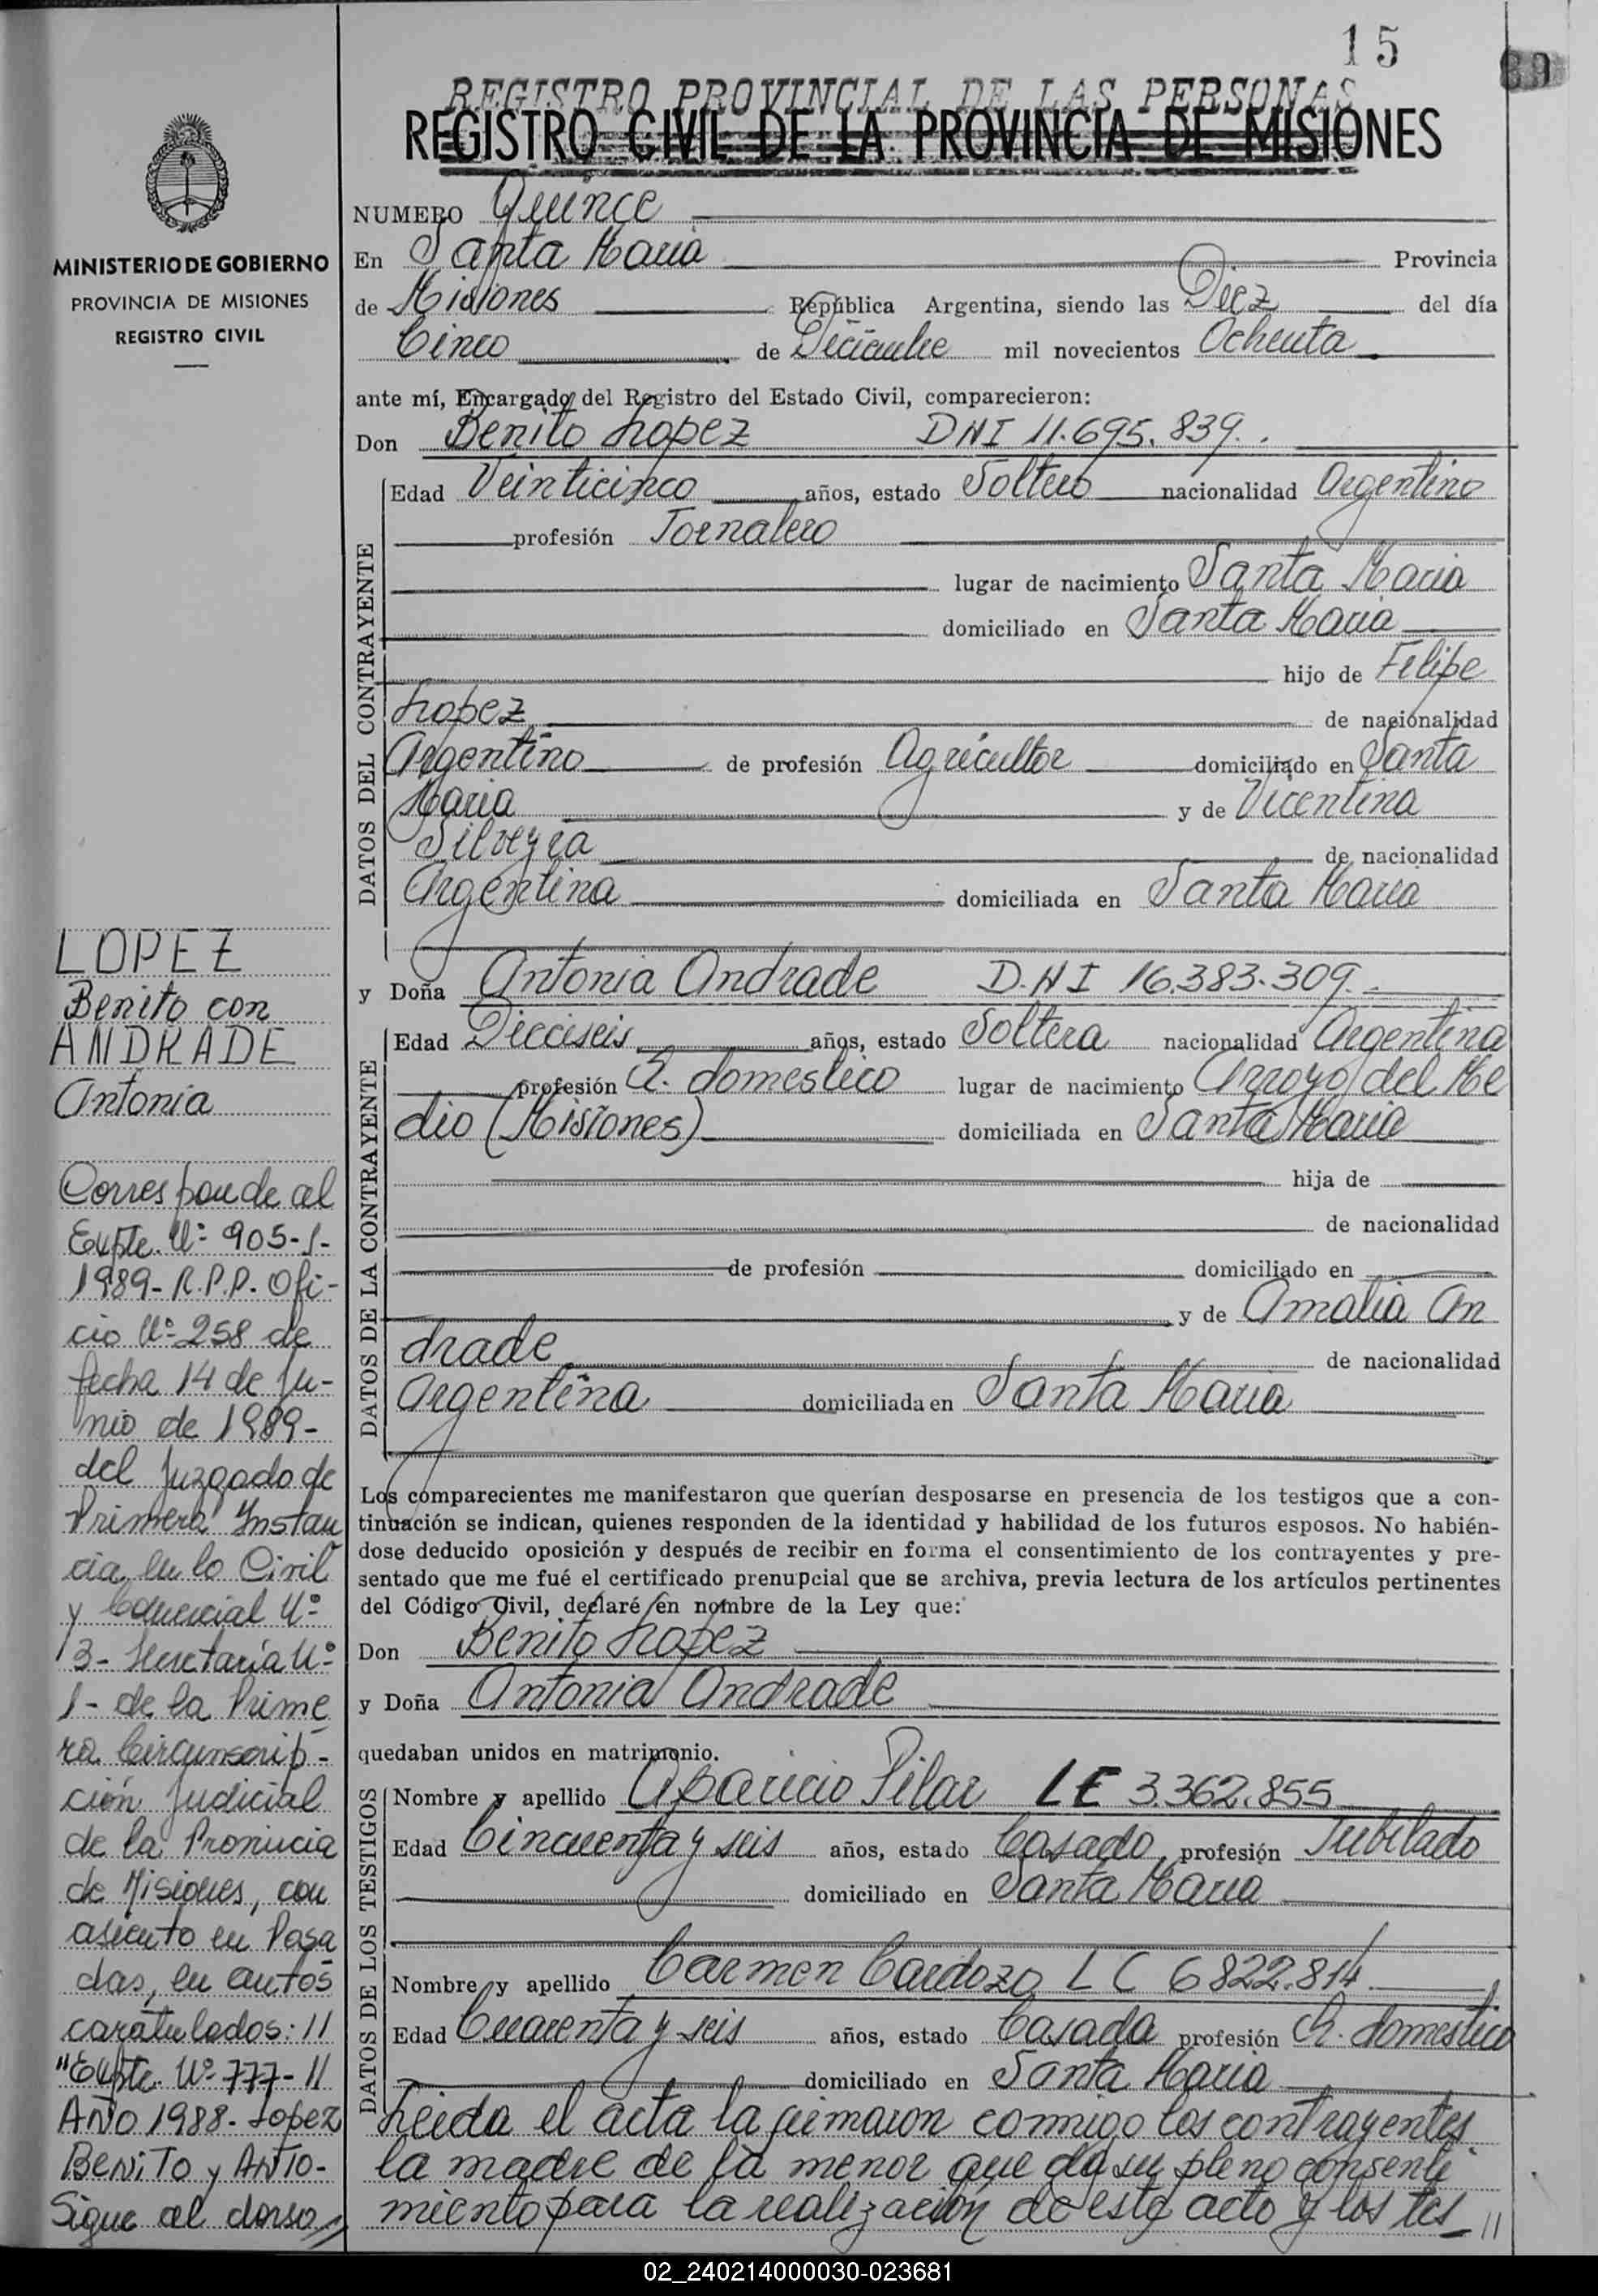 15
89
REGISTRO PROVINCIAL DE LAS PERSONAS
REGISTRO CIVIL DE LA PROVINCIA DE MISIONES
MINISTERIO DE GOBIERNO
PROVINCIA DE MISIONES
REGISTRO CIVIL
NUMERO Quince
En Santa Maria Provincia
de Misiones República Argentina, siendo las Diez del día
Cinco de Diciembre mil novecientos Ochenta
ante mí, Encargado del Registro del Estado Civil, comparecieron:
Don Benito Lopez DNI 11.695.839.
DATOS DEL CONTRAYENTE
Edad Veinticinco años, estado Soltero nacionalidad Argentino
profesión Jornalero
lugar de nacimiento Santa Maria
domiciliado en Santa Maria
hijo de Felipe
Lopez de nacionalidad
Argentino de profesión Agricultor domiciliado en Santa
Maria y de Vicentina
Silveyra de nacionalidad
Argentina domiciliada en Santa Maria
y Doña Antonia Andrade D.N.I 16.383.309.
DATOS DE LA CONTRAYENTE
Edad Dieciseis años, estado Soltera nacionalidad Argentina
profesión Q. domestico lugar de nacimiento Arroyo del Me
dio (Misiones) domiciliada en Santa Maria
hija de
de nacionalidad
de profesión domiciliado en
y de Amalia An
drade de nacionalidad
Argentina domiciliada en Santa Maria
Los comparecientes me manifestaron que querían desposarse en presencia de los testigos que a con-
tinuación se indican, quienes responden de la identidad y habilidad de los futuros esposos. No habién-
dose deducido oposición y después de recibir en forma el consentimiento de los contrayentes y pre-
sentado que me fué el certificado prenupcial que se archiva, previa lectura de los artículos pertinentes
del Código Civil, declaré en nombre de la Ley que:
Don Benito Lopez
y Doña Antonia Andrade
quedaban unidos en matrimonio.
DATOS DE LOS TESTIGOS
Nombre y apellido Aparicio Pilar LE 3.362.855
Edad Cincuenta y seis años, estado Casado profesión Jubilado
domiciliado en Santa Maria
Nombre y apellido Carmen Cardozo LC 6822.814
Edad Cuarenta y seis años, estado Casada profesión Q. domestico
domiciliado en Santa Maria
Leida el acta la firmaron conmigo los contrayentes
la madre de la menor que da su pleno consenti
miento para la realización de este acto y los tes //
LOPEZ
Benito con
ANDRADE
Antonia
Corresponde al
Expte. Nº 905-L-
1989- R.P.P. Ofi-
cio Nº 258 de
fecha 14 de Ju-
nio de 1989-
del Juzgado de
Primera Instan
cia en lo Civil
y Comercial Nº
3- Secretaría Nº
1- de la Prime
ra Circunscrip-
ción Judicial
de la Provincia
de Misiones, con
asiento en Posa
das, en autos
caratulados: //
"Expte. Nº 777- //
Año 1988- Lopez
Benito y Anto-
Sigue al dorso //
02_240214000030-023681